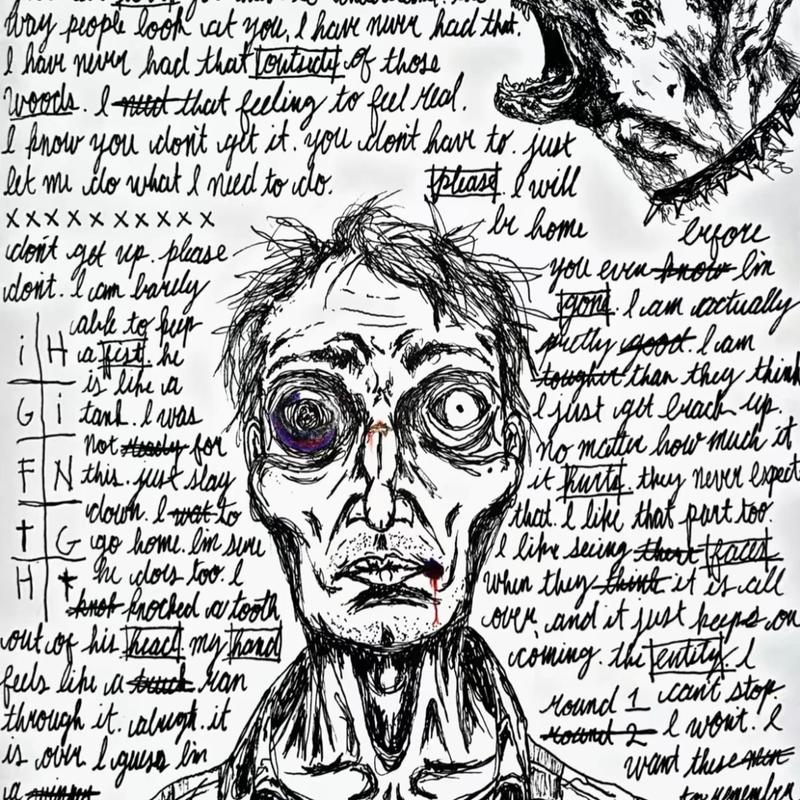 way people look at you, I have never had that.
I have never had that outside of those
woods. I need that feeling to feel real.
I know you don't get it. you don't have to. just
let me do what I need to do. please. I will
be home before
x x x x x x x x x x
don't get up. please
don't. I am barely
able to keep
a fist. he
is like a
tank. I was
not ready for
this. just stay
down. I wat to
go home. I'm sure
he does too. I
knot knocked a tooth
out of his head my hand
feels like a truck ran
through it. alright. it
is over I guess I'm
a winner
i H
G i
F N
t G
H t
you even know I'm
gone. I am actually
pretty good. I am
tougher than they think
I just get back up.
no matter how much it
it hurts. they never expect
that. I like that part too.
I like seeing their faces
when they think it is all
over, and it just keeps on
coming. the entity I
round 1 can't stop.
round 2 I won't. I
want these men
to remember